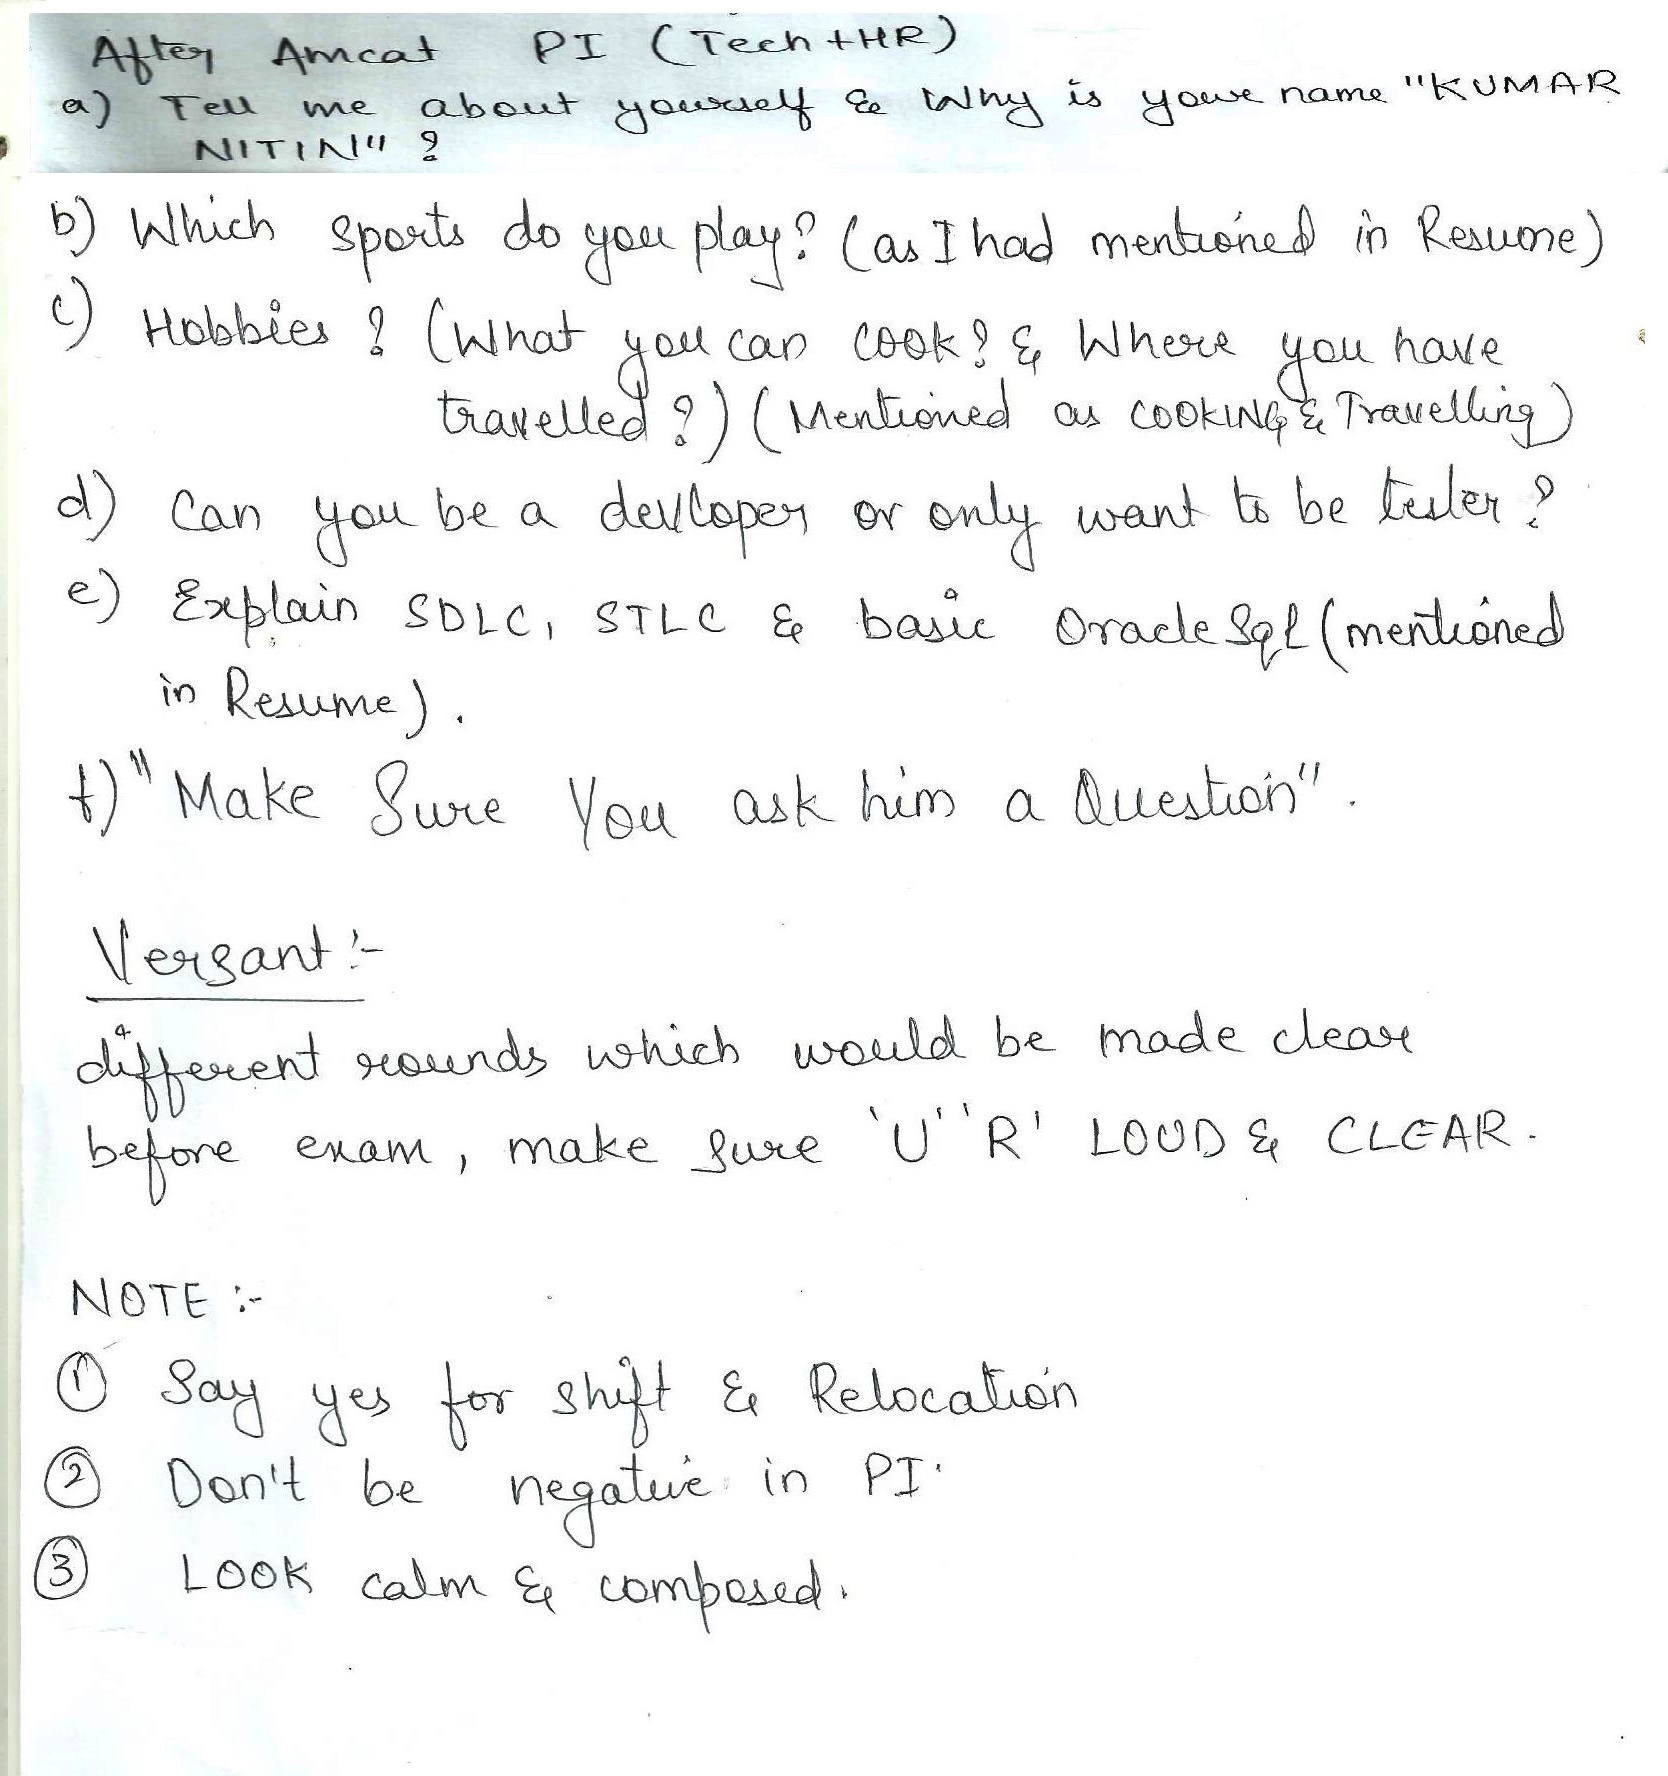 After Amcat PI (Tech + HR)
a) Tell me about yourself & Why is youre name "KUMAR
NITIN" ?
b) Which sports do you play? (as I had mentioned in Resume)
c) Hobbies ? (What you can cook? & Where you have
travelled ?) (Mentioned as COOKING & Travelling)
d) Can you be a devloper or only want to be tester ?
e) Explain SDLC, STLC & basic Oracle Sql (mentioned
in Resume).
f) "Make Sure You ask him a Question".
Versant :-
different rounds which would be made clear
before exam, make sure 'U' 'R' LOUD & CLEAR.
NOTE :-
① Say yes for shift & Relocation
② Don't be negative in PI.
③ LOOK calm & composed.